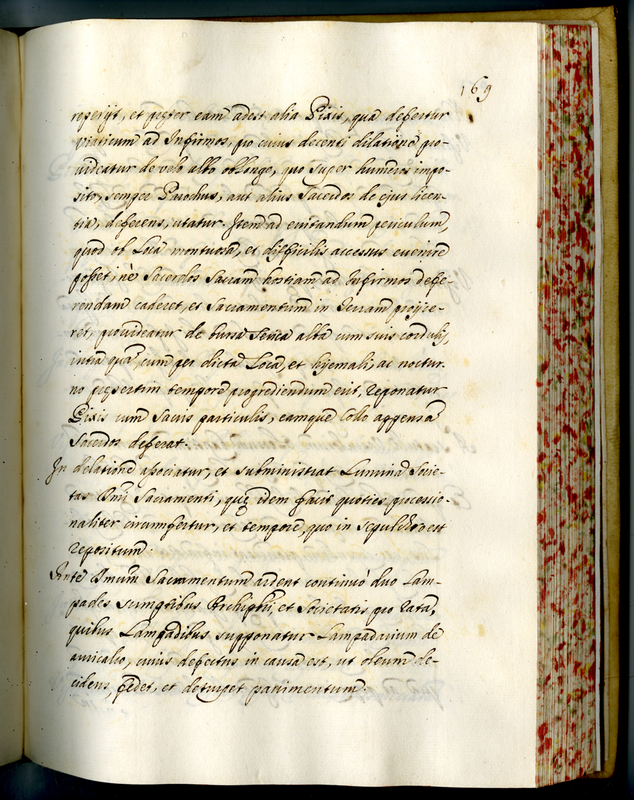 169
reperijt, et præter eam adest alia Pixis, qua defertur
viaticum ad Infirmos, pro cuius decenti delatione pro-
videatur de velo albo oblongo, quo super humeros impo-
sito, semper Parochus, aut alius Sacerdos de ejus licen-
tia, deferens, utatur. Item ad evitandum periculum,
quod ob Loca montuosa, et difficilis accessus evenire
posset, ne Sacerdos Sacram hostiam ad Infirmos defe-
rendam caderet, et Sacramentum in Terram projice-
ret, provideatur de bursa Serica alba cum suis cordulis,
intra quam, cum per dicta Loca, et hyemali, ac noctur-
no præsertim tempore progrediendum erit, reponatur
Pixis cum Sacris particulis, eamque Collo appensa
Sacerdos deferat.
In delatione associatur, et subministrat Lumina Socie-
tas Smi Sacramenti, quæ idem facit quoties processio-
naliter circumfertur, et tempore, quo in Sepulcro est
repositum.
Ante Smum Sacramentum ardent continuò duo Lam-
pades sumptibus Archiptri, et Societatis pro rata,
quibus Lampadibus supponatur Lampadarium de
auricalco, cuius defectus in causa est, ut oleum de-
cidens, fædet, et deturpet pavimentum.